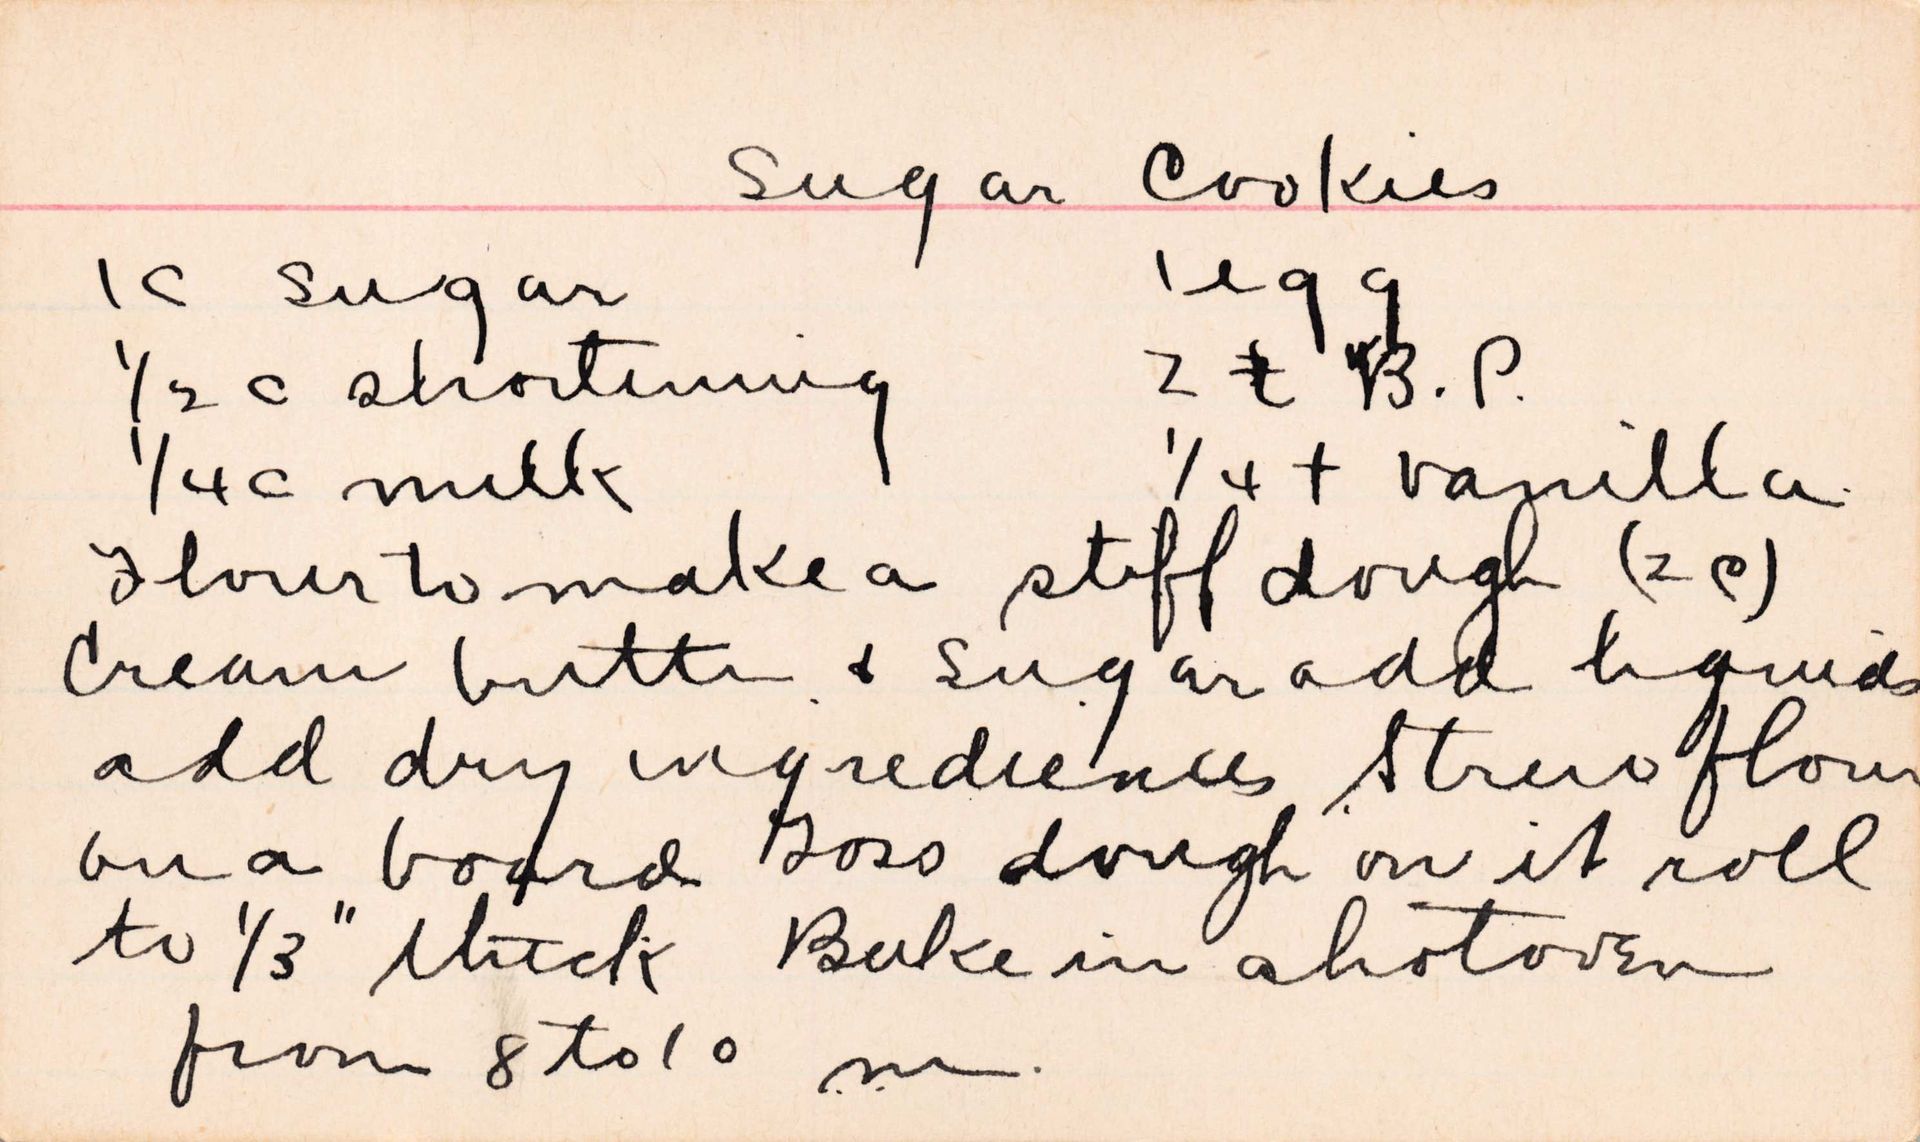 Sugar Cookies
1c Sugar 1 egg
1/2 c shortening 2 t B.P.
1/4 c milk 1/4 t vanilla
Flour to make a stiff dough (2 c)
Cream butter & Sugar add liquids
add dry ingrediences Strew flour
on a board Toss dough on it roll
to 1/3" thick Bake in a hot oven
from 8 to 10 m.